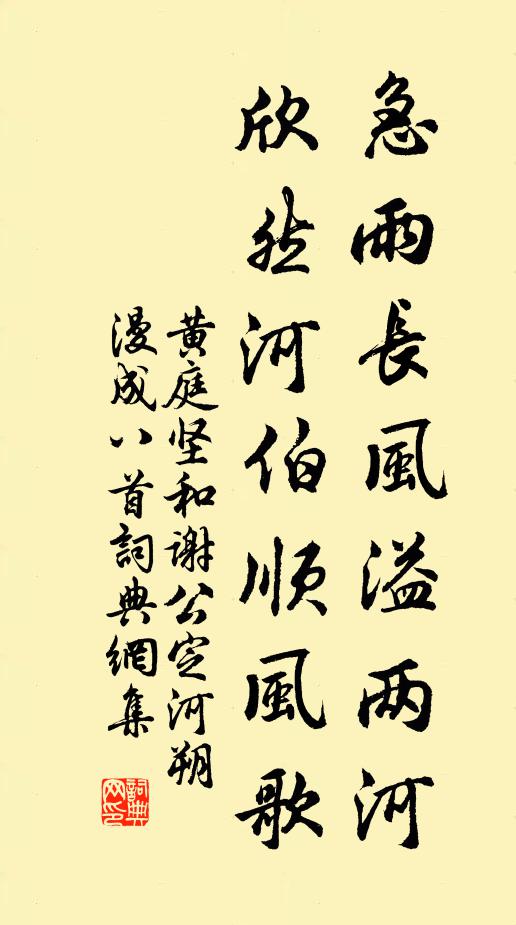 急雨長風溢两河
欣然河伯順風歌
黄庭坚和谢公定河朔
漫成八首詞典網集
詞典网印